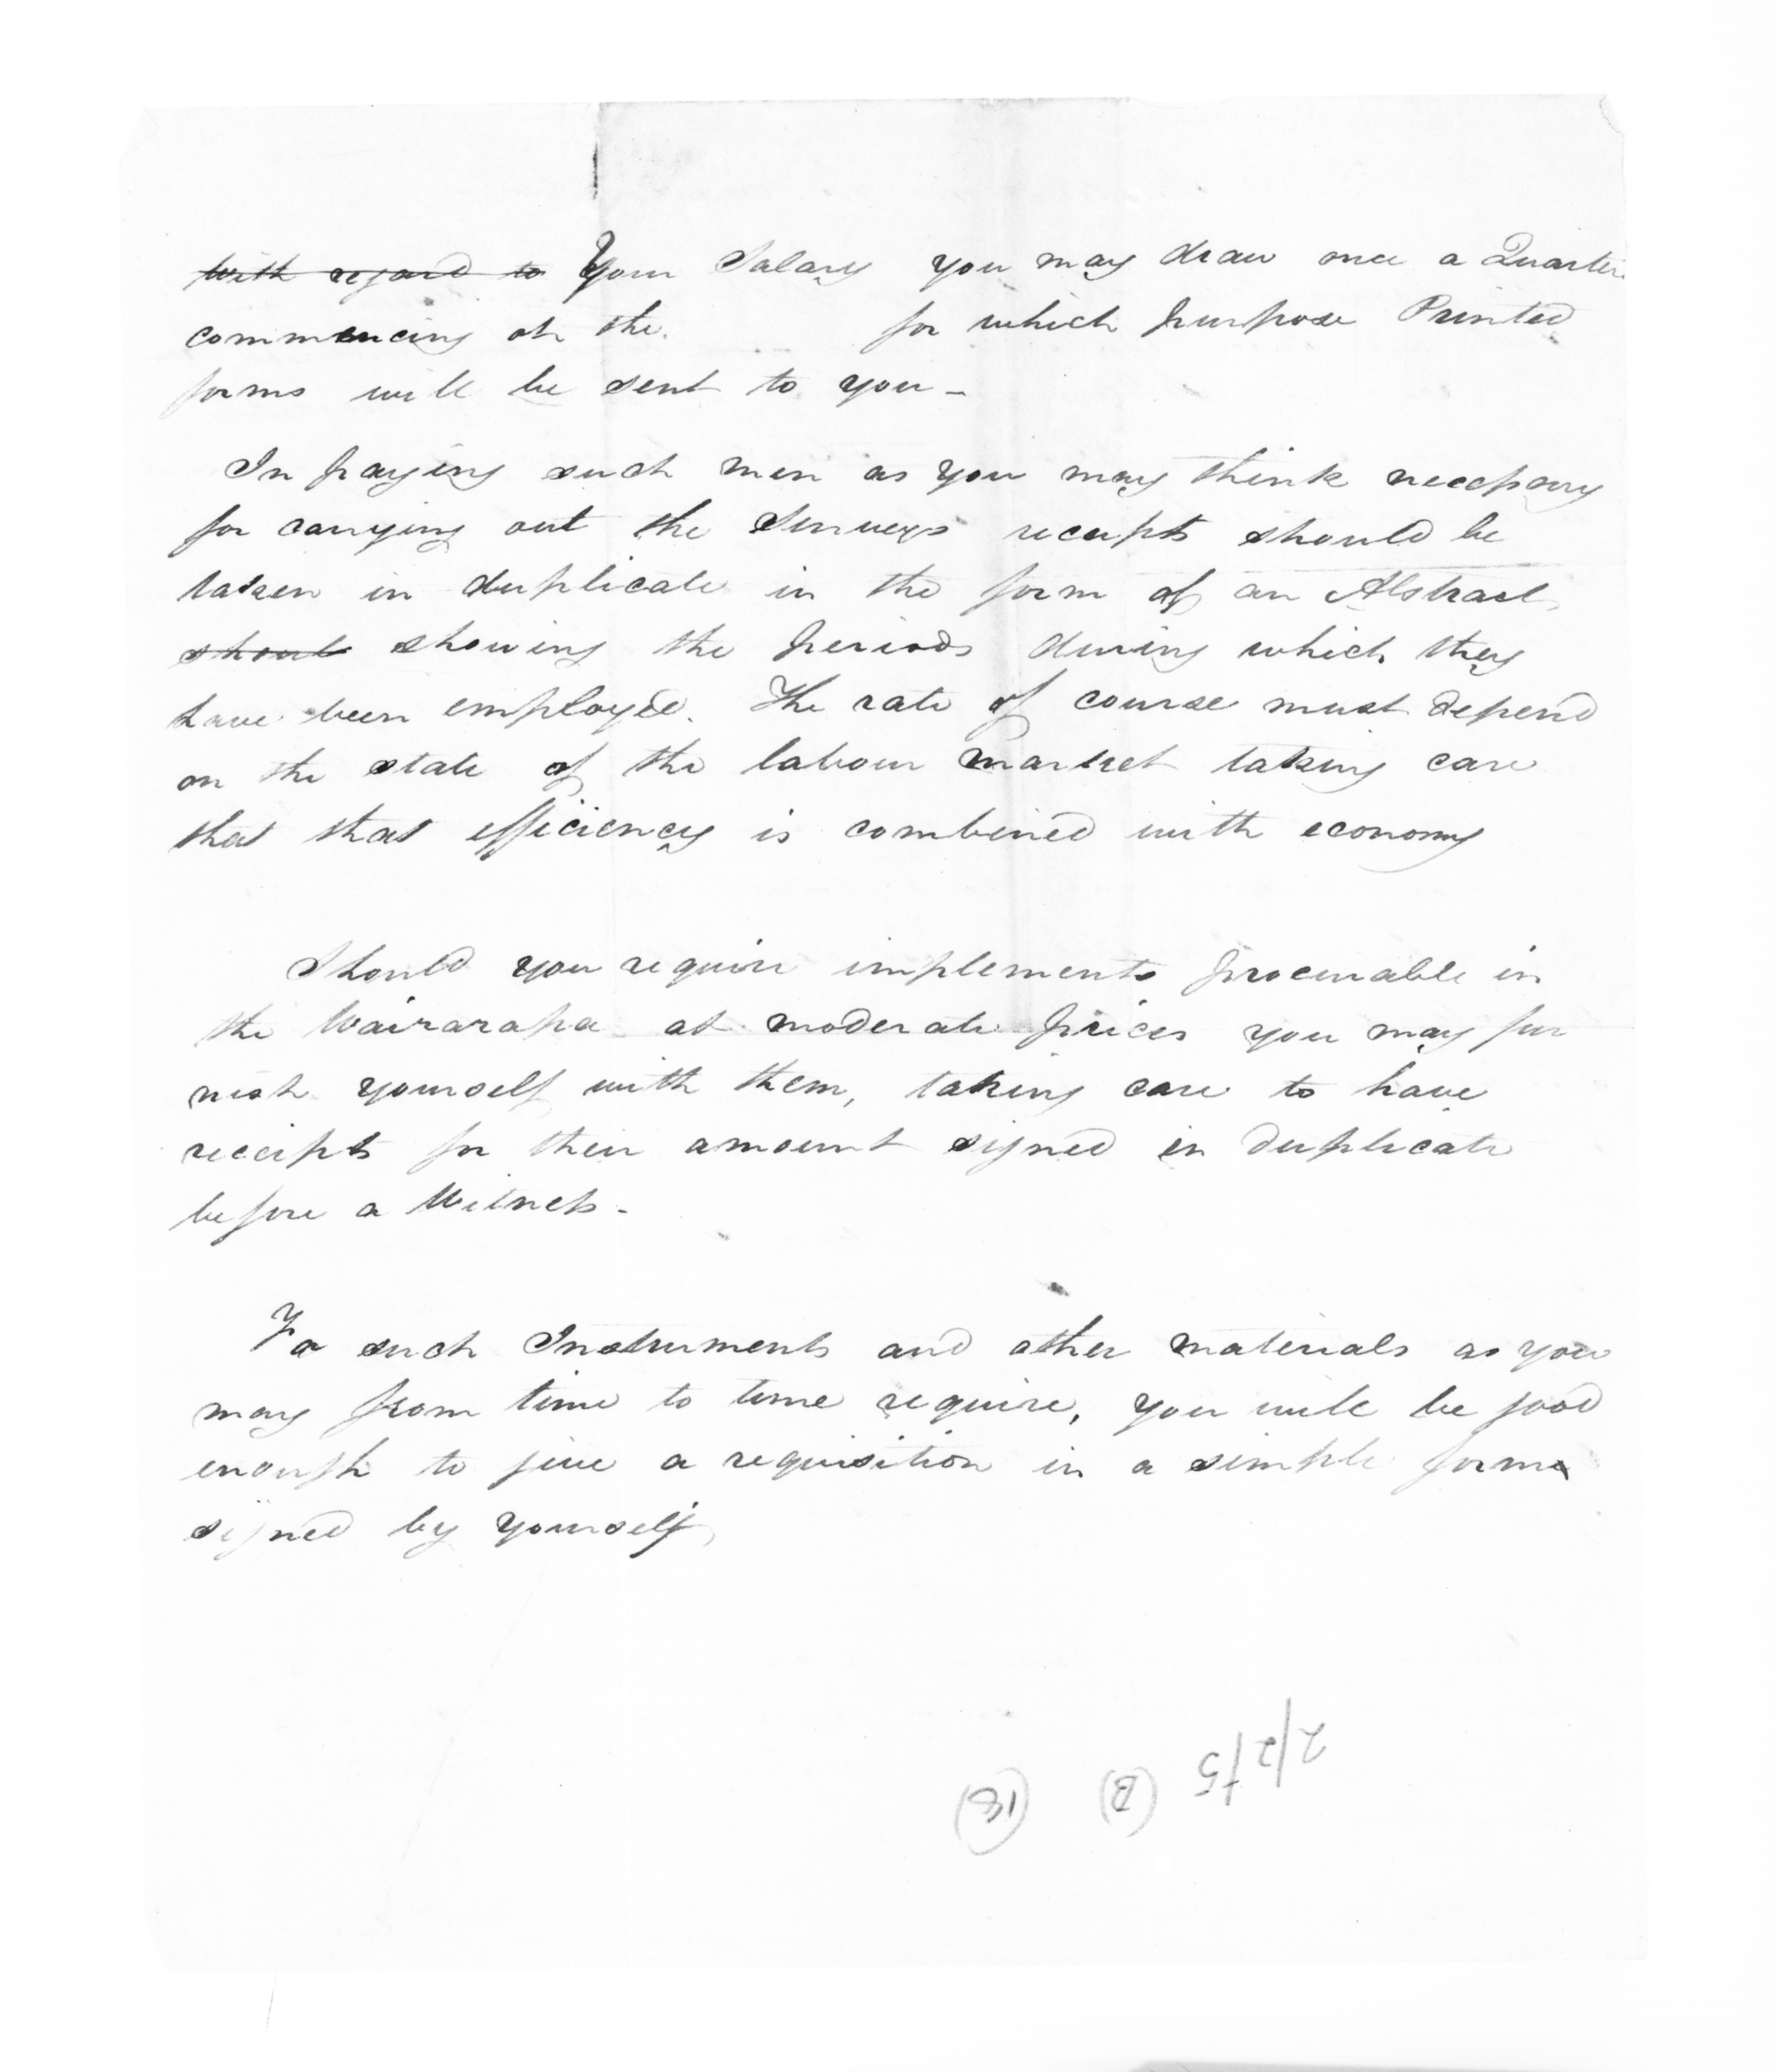 With regard to Your Salary you may draw once a Quarter
commencing on the for which purpose Printed
forms will be sent to you -
In paying such men as you may think necessary
for carrying out the Surveys receipts should be
taken in duplicate in the form of an Abstract
shoul showing the periods during which they
have been employed. The rate of course must depend
on the state of the labour market taking care
that that efficiency is combined with economy
Should you require implements procurable in
the Wairarapa at moderate prices you may fur
nish yourself with them, taking care to have
receipts for their amount signed in duplicate
before a Witness -
For such Instruments and other materials as you
may from time to time require, you will be good
enough to give a requisition in a simple form
signed by yourself
2/2/75 (B) (18)